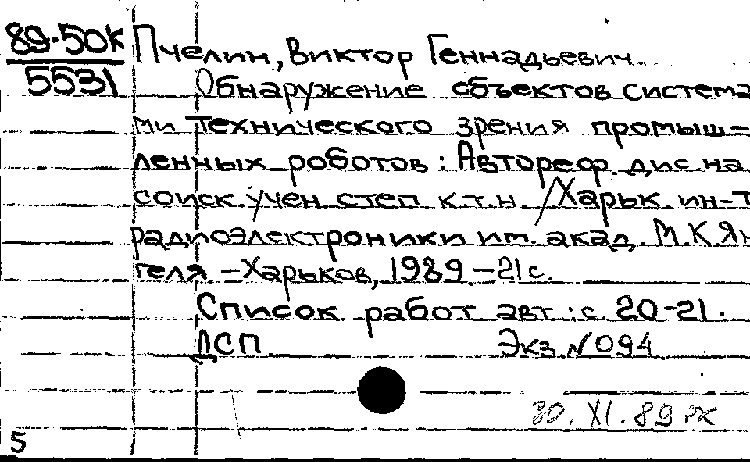 89-50к
5531
Пчелин, Виктор Геннадьевич.
Обнаружение объектов система
ми технического зрения промыш-
ленных роботов : Автореф. дис на
соиск учен степ к.т.н. /Харьк. ин-т
радиоэлектроники им. акад. М.К.Ян
геля –Харьков, 1989 –21с.
Список работ авт : с. 20-21.
ДСП Экз №094
30.XI.89
5